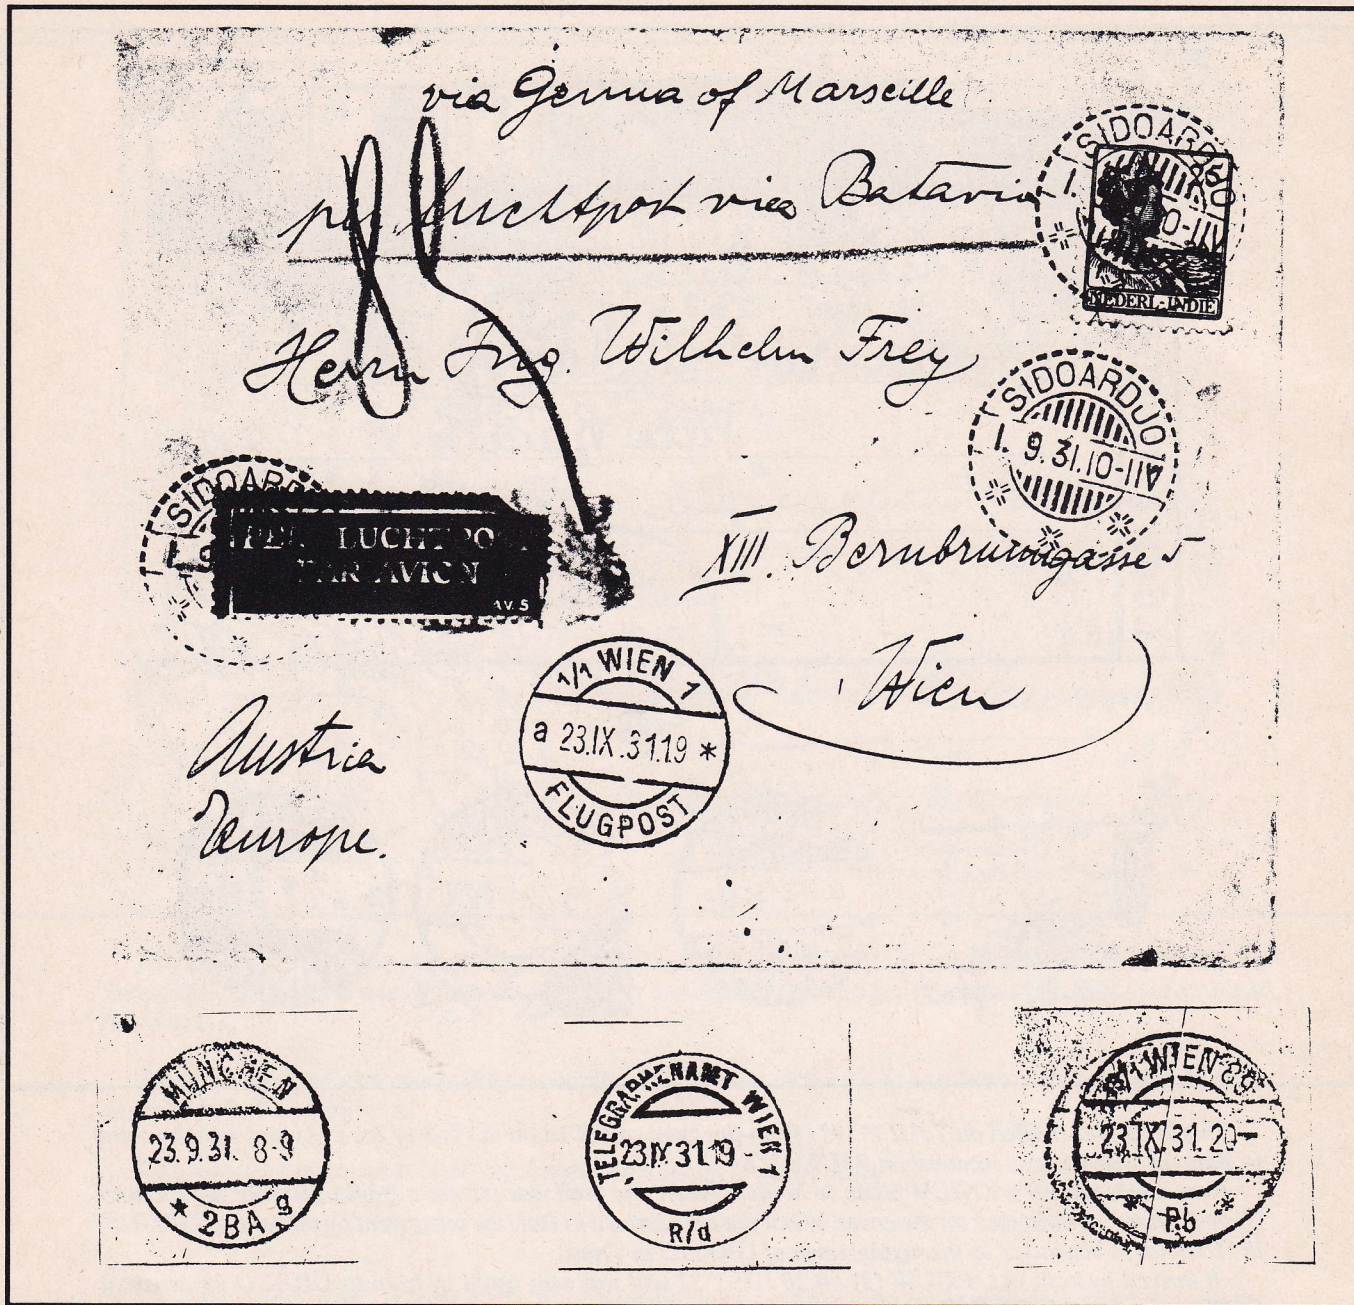 via Genua of Marseille
per luchtpost via Batavia
SIDOARDJO
NEDERL-INDIE
Herrn Ing. Wilhelm Frey
SIDOARDJO
1. 9.31.10-11V
SIDOARDJO
PER LUCHTPOST
PAR AVION
AV. 5
XIII. Bernbrunngasse 5
Wien
1/1 WIEN 1
a 23.IX.31.19 *
FLUGPOST
Austria
Europe.
MÜNCHEN
23.9.31. 8-9
* 2BA g
TELEGRAPHENAMT WIEN 1
23.IX 31.19
R/d
WIEN 89
23.IX.31.20-
* Pb *